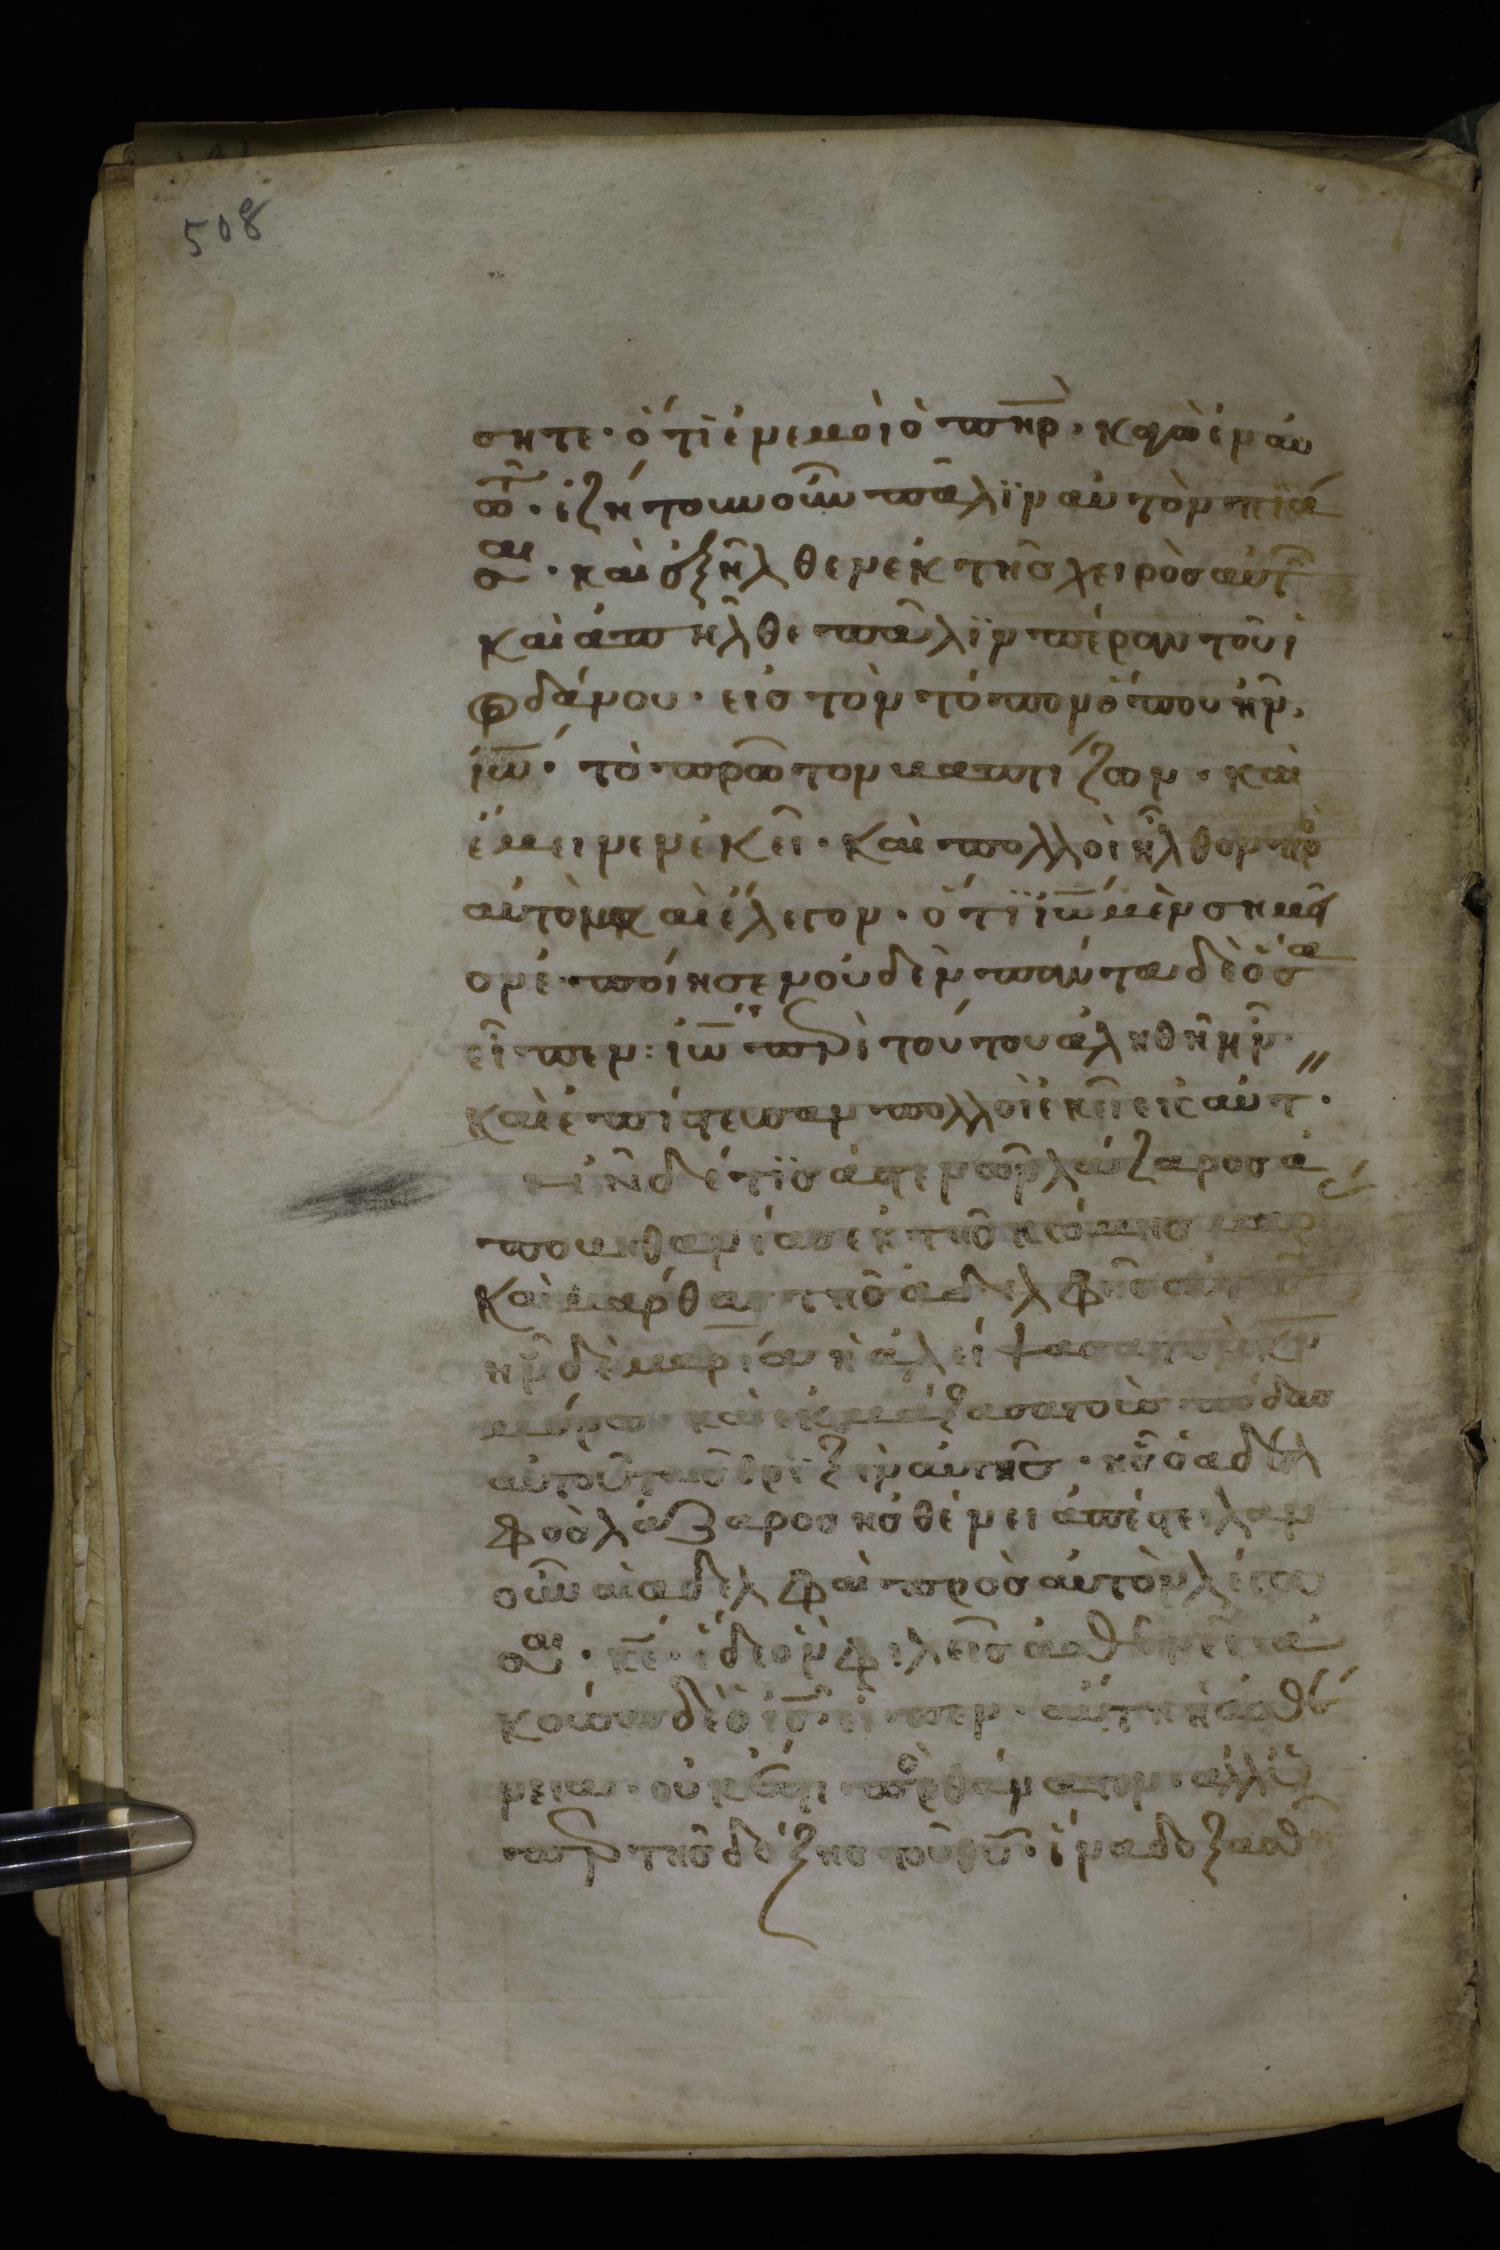 508
σητε· ὅτι ἐν ἐμοὶ ὁ πηρ̀. καγὼ ἐν αυ
τῶ· ἐζήτουν οὖν πάλϊν αὐτὸν πϊά
σαι· καὶ ἐξῆλθεν ἐκ τῆς χειρὸς αὐτῶν
καὶ ἀπῆλθε πάλϊν πέραν τοῦ ἰ
ορδάνου· εἰς τὸν τόπον ὅπου ἦν
ἰω̅· τὸ πρῶτον βαπτίζων· καὶ
ἔμεινεν ἐκεῖ· καὶ πολλοὶ ἦλθον πρὸς
αὐτὸν καὶ ἔλεγον· ὅτϊ ἰω̅ μὲν σημεῖ
ον ἐποίησεν οὐδὲν πάντα δὲ ὅσα
εἶπεν: ἰω̅ περὶ τούτου ἀληθῆ ἦν·
καὶ ἐπίστευσαν πολλοὶ ἐκεῖ εἰς αὐτ·
ἦν δέ τϊς ἀσθενῶν λάζαροσ ἀ
πο βηθανίας ἐκ τῆς κώμης μαρ
καὶ μάρθας τῆς ἀδελφῆς αὐτῆς
ἦν δὲ μαρία ἡ ἀλείψασα τὸν κ̅ν̅
μύρω καὶ ἐκμάξασα τοὺς πόδας
αὐτοῦ ταῖς θριξὶν αὐτῆς· ἧς ὁ ἀδελ
φὸς λάζαρος ἠσθένει ἀπέστειλαν
οὖν αἱ ἀδελφαὶ πρὸς αὐτὸν λέγου
σαι· κ̅ε̅· ἴδε ὃν φιλεῖς ἀσθενεῖ ἀ
κούσας δὲ ὁ ι̅ς̅· εἶπεν· αὕτη ἡ ἀσθέ
νεια· οὐκ ἔστι πρὸς θάνατον· ἀλλ' ὑ
πὲρ τῆς δόξης τοῦ θ̅υ̅· ἵνα δοξασθ